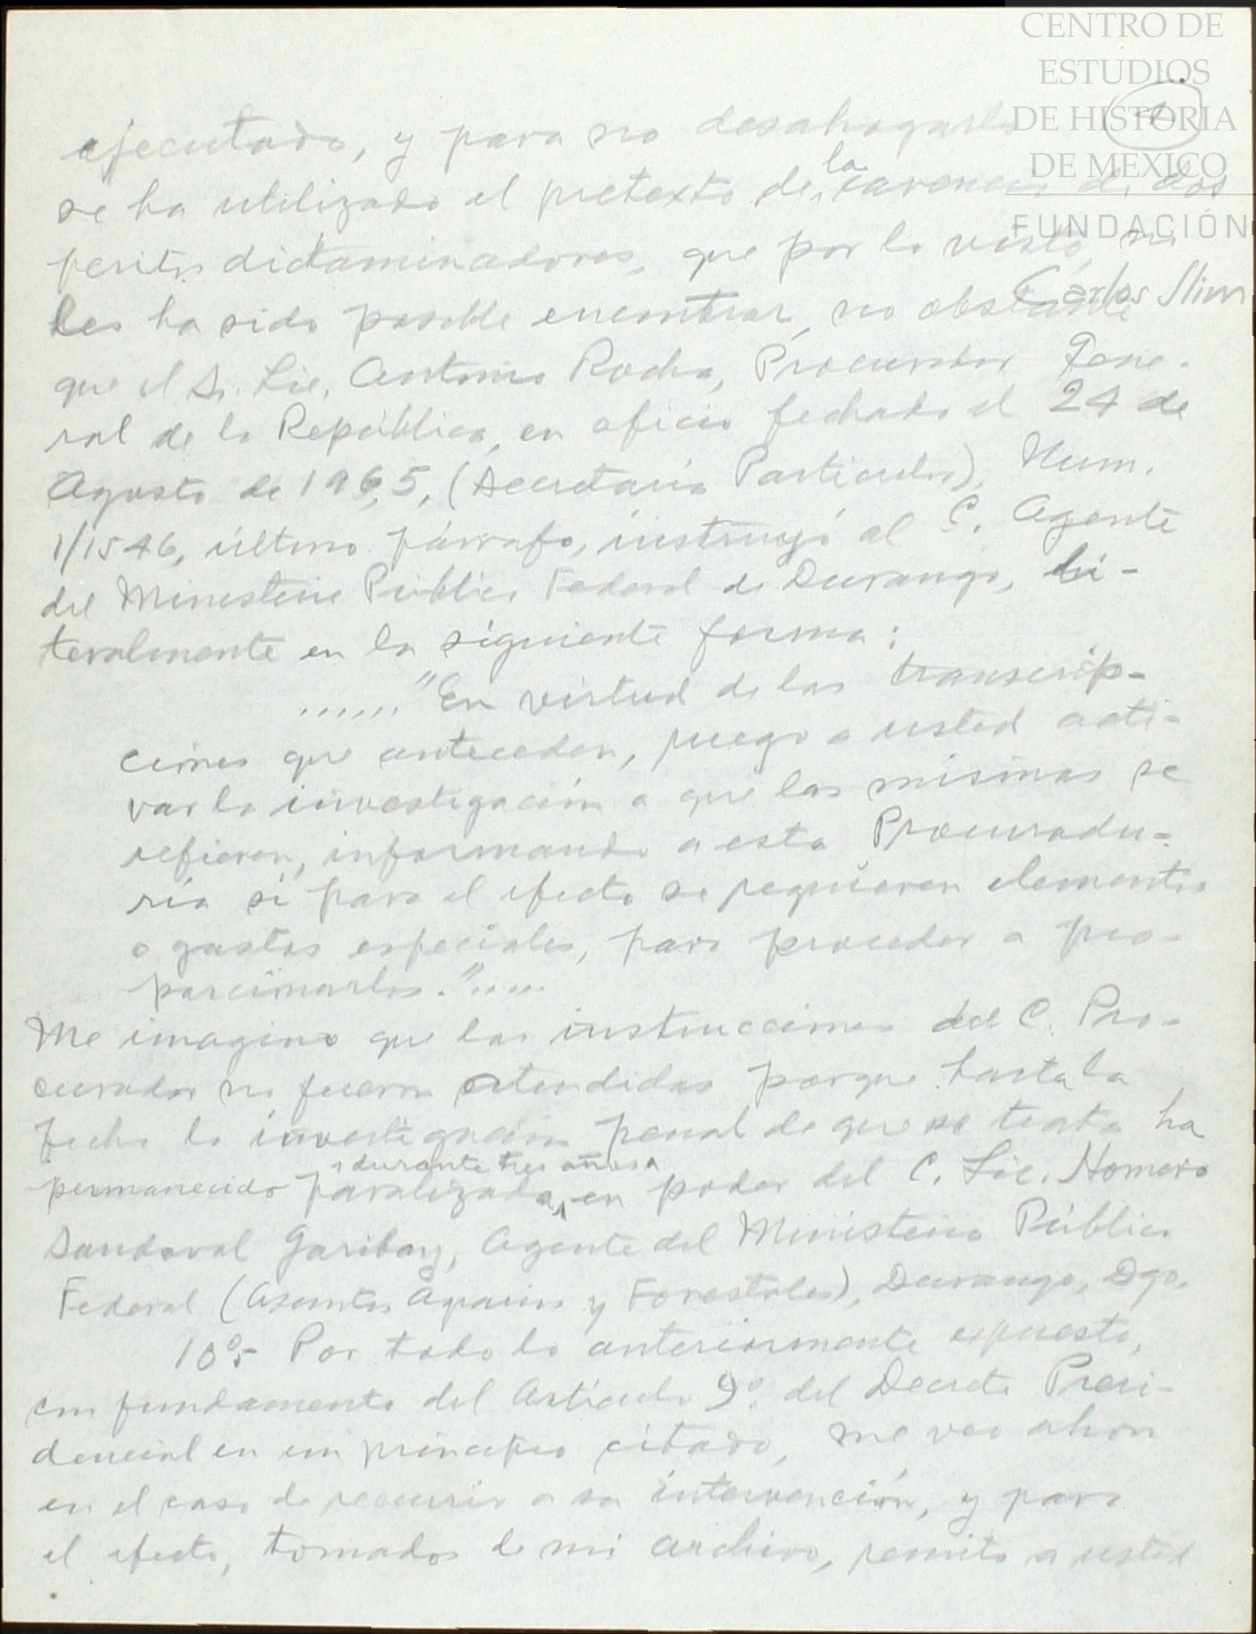 CENTRO DE
ESTUDIOS
DE HISTORIA
DE MEXICO
FUNDACIÓN
Carlos Slim
ejecutado, y para no desahogarlo
se ha utilizado el pretexto de la carencia de dos
peritos dictaminadores, que por lo visto, no
les ha sido posible encontrar, no obstante
que el Sr. Lic. Antonio Rocha, Procurador Gene-
ral de la República, en oficio fechado el 24 de
Agosto de 1965, (Secretaría Particular), Num.
1/1546, último párrafo, instruyó al C. Agente
del Ministerio Público Federal de Durango, li-
teralmente en la siguiente forma:
......"En virtud de las transcrip-
ciones que anteceden, ruego a usted acti-
var la investigación a que las mismas se
refieren, informando a esta Procuradu-
ría si para el efecto se requieren elementos
o gastos especiales, para proceder a pro-
porcionarlos.".....
Me imagino que las instrucciones del C. Pro-
curador no fueron atendidas porque hasta la
fecha la investigación penal de que se trata ha
permanecido paralizada, durante tres años, en poder del C. Lic. Homero
Sandoval Garibay, Agente del Ministerio Público
Federal (Asuntos Agrarios y Forestales), Durango, Dgo.
10º.- Por todo lo anteriormente expuesto,
con fundamento del Artículo 9º. del Decreto Presi-
dencial en un principio citado, me veo ahora
en el caso de recurrir a su intervención, y para
el efecto, tomados de mi archivo, remito a usted